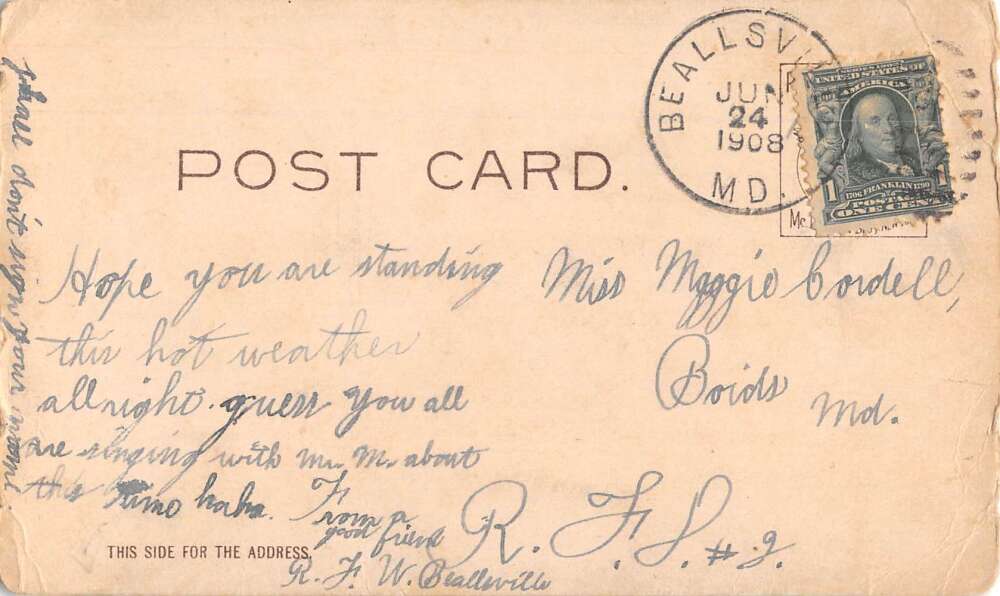 BEALLSVI
JUN
24
1908
MD.
SERIES 1902
UNITED STATES OF
AMERICA
1706 FRANKLIN 1790
POSTAGE
1 ONE CENT
POST CARD.
Hope you are standing
this hot weather
all right. guess you all
are singing with Mr. M. about
this time haha. From a
good friend
R. F. W. Beallsville
don't sign your name.
Miss Maggie Cordell,
Boids
Md.
R. F. D. # 2.
THIS SIDE FOR THE ADDRESS.